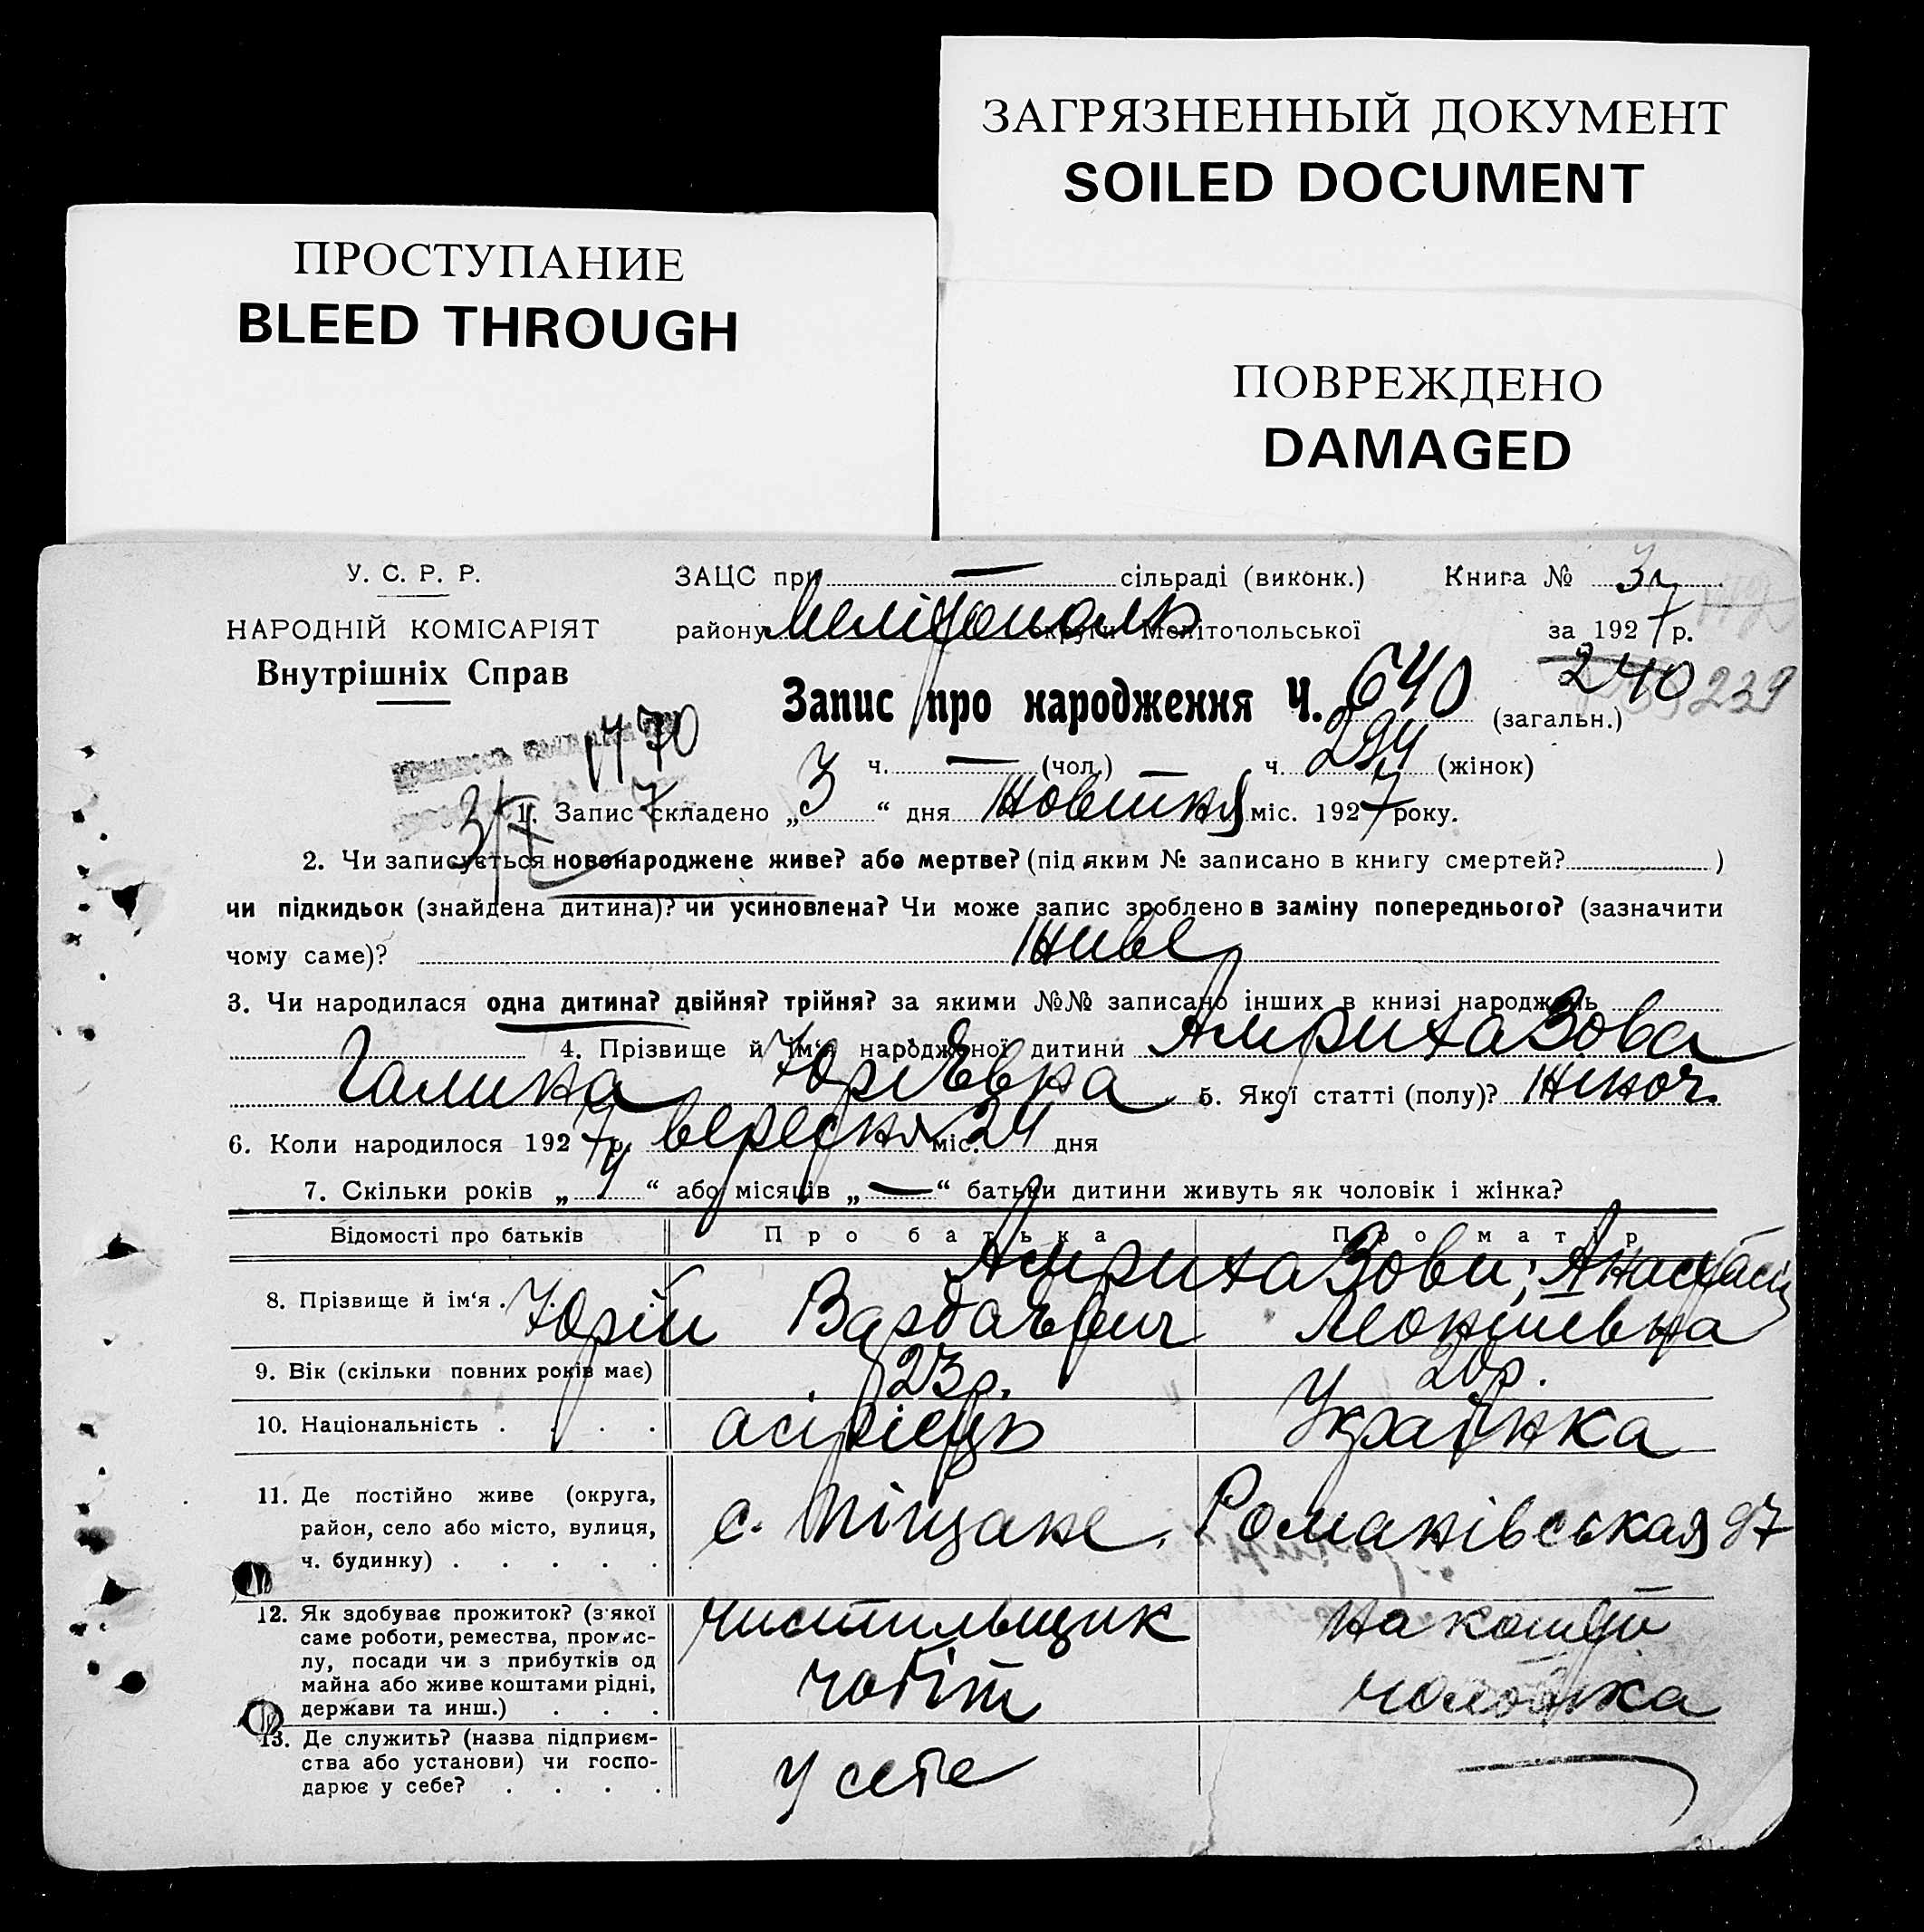 ЗАГРЯЗНЕННЫЙ ДОКУМЕНТ
SOILED DOCUMENT
ПРОСТУПАНИЕ
BLEED THROUGH
ПОВРЕЖДЕНО
DAMAGED
У. С. Р. Р.
НАРОДНІЙ КОМІСАРІЯТ
Внутрішніх Справ
ЗАЦС при — сільраді (виконк.) Книга № 3
району Мелітополь округи Мелітопольської за 1927 р.
240 239
Запис про народження Ч. 640 (загальн.)
1470
ч. — (чол.) ч. 294 (жінок)
1. Запис складено „3“ дня Жовтня міс. 1927 року.
2. Чи записується новонароджене живе? або мертве? (під яким № записано в книгу смертей? )
чи підкидьок (знайдена дитина)? чи усиновлена? Чи може запис зроблено в заміну попереднього? (зазначити
чому саме)? Живе
3. Чи народилася одна дитина? двійня? трійня? за якими №№ записано інших в книзі народжень
4. Прізвище й ім'я народженої дитини Амрихазова
Галина Юріевна 5. Якої статті (полу)? Жіноч.
6. Коли народилося 1927 р. вересня міс. 24 дня
7. Скільки років „1“ або місяців „—“ батьки дитини живуть як чоловік і жінка?
Відомості про батьків Про батька Про матір
Амрихазови; Анастасія
8. Прізвище й ім'я . Юрій
9. Вік (скільки повних років має) 23 р. 20 р.
10. Національність . . . . асірієць Українка
11. Де постійно живе (округа,
район, село або місто, вулиця,
ч. будинку) . . . . .
с. Піщане. Романівськая 97
12. Як здобуває прожиток? (з якої
саме роботи, ремества, промис-
лу, посади чи з прибутків од
майна або живе коштами рідні,
держави та инш.) . . .
чистильщик чобіт
на кошти чоловіка
13. Де служить? (назва підприєм-
ства або установи) чи госпо-
дарює у себе? . . . .
у себе